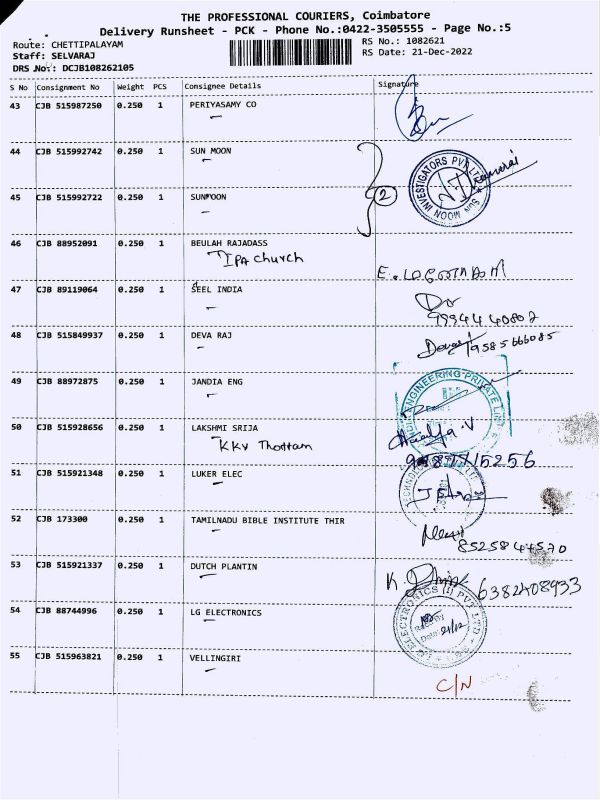 THE PROFESSIONAL COURIERS, Coimbatore
Delivery Runsheet - PCK - Phone No.:0422-3505555 - Page No.:5
Route: CHETTIPALAYAM
RS No.: 1082621
Staff: SELVARAJ
RS Date: 21-Dec-2022
DRS No.: DCJB108262105
S No Consignment No Weight PCS Consignee Details Signature
43 CJB 515987250 0.250 1 PERIYASAMY CO
44 CJB 515992742 0.250 1 SUN MOON
SUN MOON INVESTIGATORS PVT LTD
2
45 CJB 515992722 0.250 1 SUNMOON
46 CJB 88952091 0.250 1 BEULAH RAJADASS
IPA Church
47 CJB 89119064 0.250 1 SEEL INDIA
9994440802
48 CJB 515849937 0.250 1 DEVA RAJ
9585666085
49 CJB 88972875 0.250 1 JANDIA ENG
ENGINEERING PRIVATE LIMITED
50 CJB 515928656 0.250 1 LAKSHMI SRIJA
KKV Thottam
51 CJB 515921348 0.250 1 LUKER ELEC
52 CJB 173300 0.250 1 TAMILNADU BIBLE INSTITUTE THIR
8525844570
53 CJB 515921337 0.250 1 DUTCH PLANTIN
6382408933
54 CJB 88744996 0.250 1 LG ELECTRONICS
ELECTRONICS (I) PVT LTD
Date: 21/12
55 CJB 515963821 0.250 1 VELLINGIRI
C/N